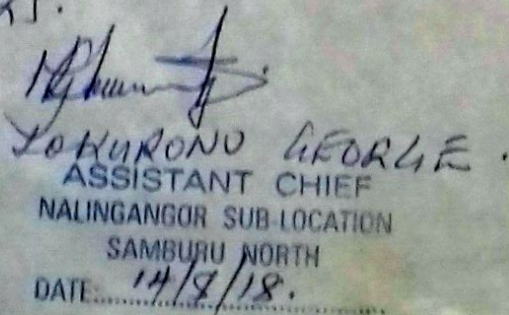 LOKURONO GEORGE.
ASSISTANT CHIEF
NALINGANGOR SUB-LOCATION
SAMBURU NORTH
DATE: 14/8/18.